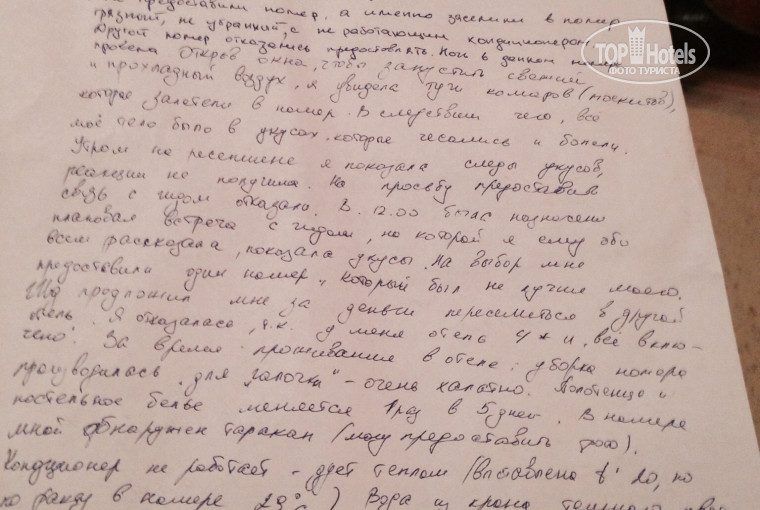 TOP Hotels
ФОТО ТУРИСТА
предоставили номер, а именно заселили в номер
грязный, не убранный, с не работающим кондиционером.
Другой номер отказались предоставлять. Ночь в данном номере
провела. Открыв окна, чтобы запустить свежий
и прохладный воздух, я увидела тучи комаров (москитов),
которые залетели в номер. В следствии чего, всё
моё тело было в укусах, которые чесались и болели.
Утром на ресепшене я показала следы укусов,
реакции не получила. На просьбу предоставить
связь с гидом отказали. В 12.00 была назначена
плановая встреча с гидом, на которой я ему обо
всем рассказала, показала укусы. На выбор мне
предоставили один номер, который был не лучше моего.
Гид предложил мне за деньги переселиться в другой
отель. Я отказалась, т.к. у меня отель 4* и "все вклю-
чено". За время проживания в отеле: уборка номера
производилась для "галочки" - очень халатно. Полотенца и
постельное белье меняется 1 раз в 5 дней. В номере
мной обнаружен таракан (могу предоставить фото).
Кондиционер не работает - дует теплом (выставлено 20, но
по факту в номере 29°C) Вода из крана